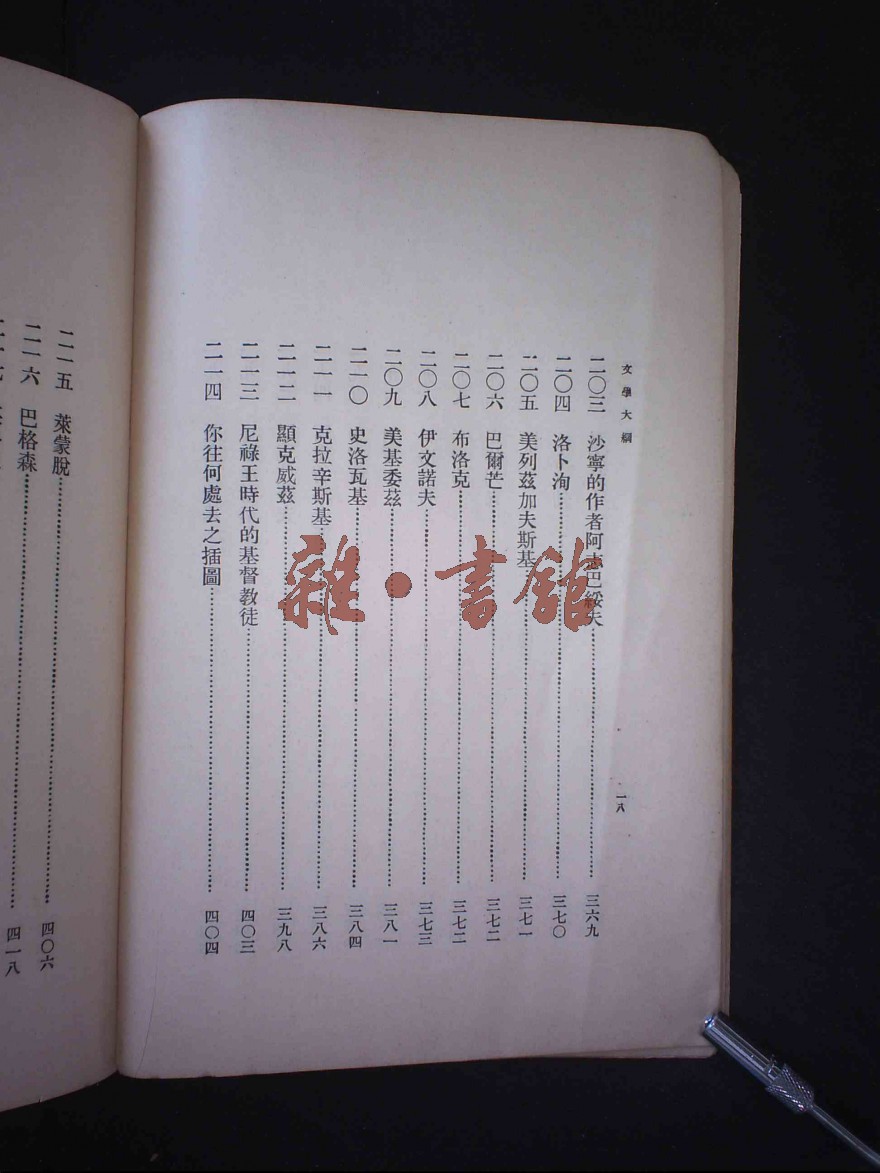 文學大綱
二〇三 沙寧的作者阿志巴綏夫……三六九
二〇四 洛卜洵……三七〇
二〇五 美列茲加夫斯基……三七一
二〇六 巴爾芒……三七二
二〇七 布洛克……三七二
二〇八 伊文諾夫……三七三
二〇九 美基委茲……三八一
二一〇 史洛瓦基……三八四
二一一 克拉辛斯基……三八六
二一二 顯克威茲……三九八
二一三 尼祿王時代的基督教徒……四〇三
二一四 你往何處去之插圖……四〇四
一八
二一五 萊蒙脫……四〇六
二一六 巴格森……四一八
雜·書館